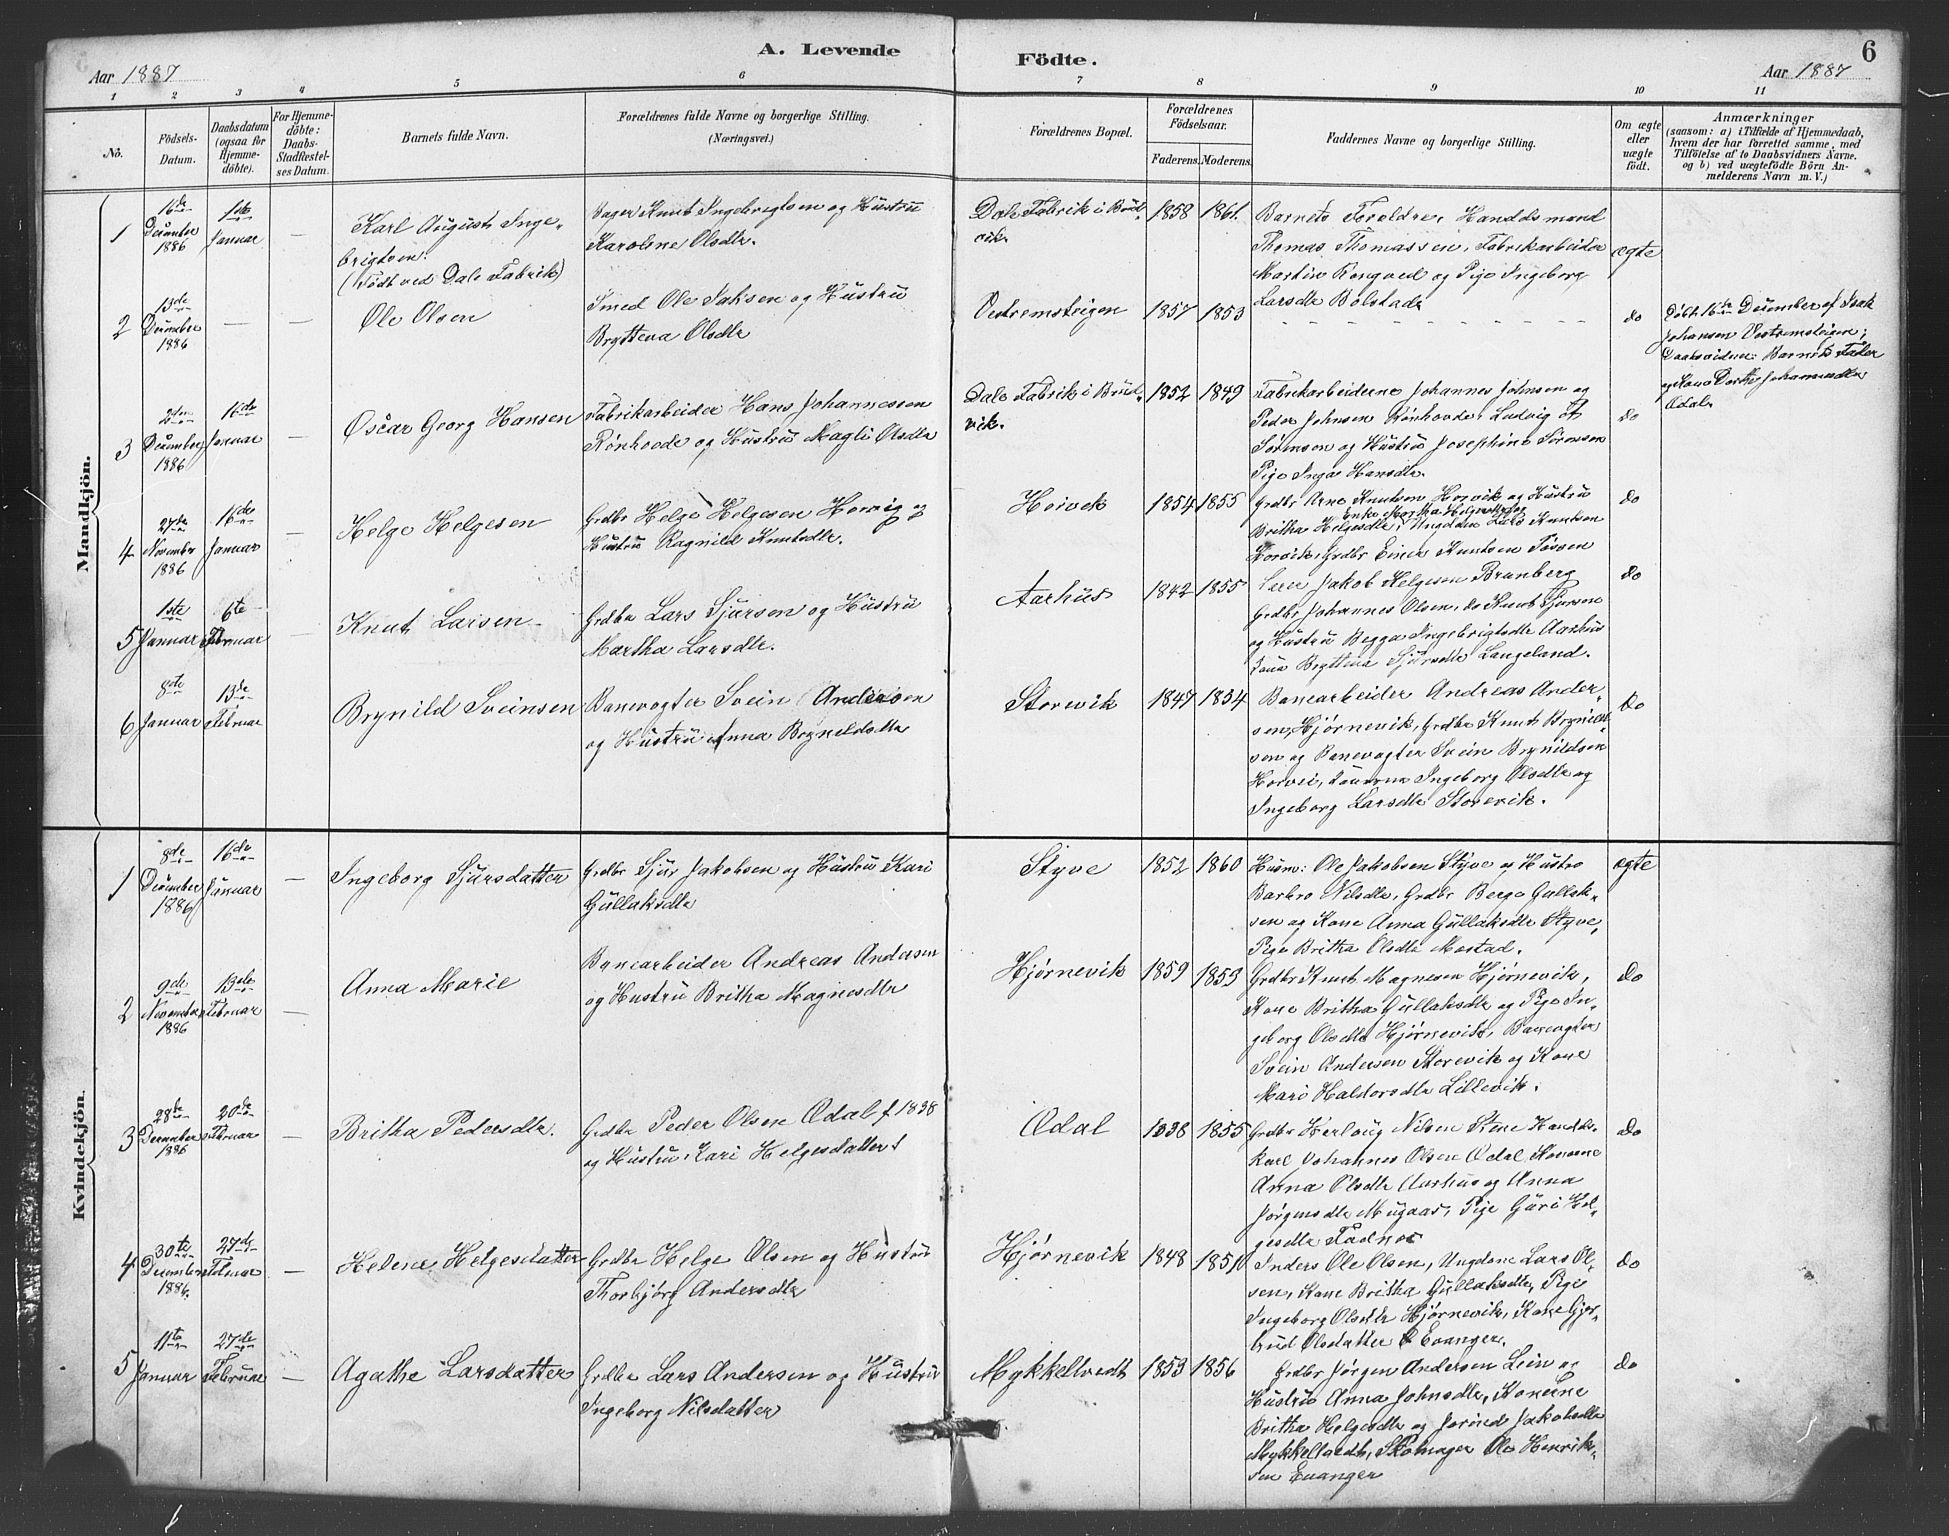 A. Levende Födte.
6
Aar 1887
Aar 1887
1 2 3 4 5 6 7 8 9 10 11
No.
Födsels-Datum.
Daabsdatum (ogsaa for Hjemmedöbte).
For Hjemmedöbte: Daabs-Stadfæstelses Datum.
Barnets fulde Navn.
Forældrenes fulde Navne og borgerlige Stilling. (Næringsvei.)
Forældrenes Bopæl.
Forældrenes Födselsaar.
Faderens. Moderens.
Faddernes Navne og borgerlige Stilling.
Om ægte eller uægte födt.
Anmærkninger
(saasom: a) i Tilfælde af Hjemmedaab, hvem der har forrettet samme, med Tilföielse af to Daabsvidners Navne, og b) ved uægtefödte Börn Anmelderens Navn m. V.)
Mandkjön.
1
16de December 1886
1ste Januar
—
Karl August Ingebrigtsen.
(Født ved Dale Fabrik)
Knut Ingebrigtsen og Hustru
Karoline Olsdtr.
Dale Fabrik i Brudvik.
1858 1861.
Barnets Foreldre, Handelsmand
Thomas Thomassen, Fabrikarbeider
Martin og Pige Ingeborg
Larsdtr Bolstad.
ægte
2
13de December 1886
— —
Ole Olsen
Smed Ole Isaksen og Hustru
Brytteva Olsdtr
Vestremsteigen
1857 1853
do
Døbt 16de December af Isak
Johansen Vestremsteigen;
Daabsvidner: Barnets Fader
og Kone Dorthe Johannesdtr
Ødal.
3
2den December 1886
16de Januar
—
Oscar Georg Hansen
Fabrikarbeider Hans Johannessen
Rønhovde og Hustru Magli Olsdtr
Dale Fabrik i Brudvik.
1852 1849
Fabrikarbeiderne Johannes Johnsen og
Peder Johnsen Rønhovde, Ludvig
Sørensen og Hustru Josephine Sørensen
Pige Inga Hansdtr.
do
4
27de November 1886
16de Januar
—
Helge Helgesen
Grdbr Helge Helgesen Horvig og
Hustru Ragnild Knutsdtr.
Horvik
1854 1855
Grdbr Arne Knutsen Horvik og Hustru
Enke Martha Helgesdatter
Britha Helgesdtr, Ungdom Lars Knutsen
Horvik, Grdbr Einar Knutsen Fossen
do
5
1ste Januar
6te Februar
—
Knut Larsen
Grdbr Lars Sjursen og Hustru
Martha Larsdtr.
Aarhus
1842 1855
Lærer Jakob Helgesen Brunberg
Grdbr Johannes Olsen, do Knut Sjursen
og Hustru Begga Ingebrigtsdtr Aarhus
Brytteva Sjursdtr Langeland.
do
6
8de Januar
13de Februar
Brynild Sveinsen
Banevogter Svein Andersen
og Hustru Anna Brynildsdtr
Storevik
1847 1854
Banearbeider Andreas Andersen,
Hjørnevik, Grdbr Knut Brynildsen
og Banevogter Svein Brynildsen
Horvei, Ingeborg Olsdtr og
Ingeborg Larsdtr Storevik.
do
Kvindekjön.
1
8de December 1886
16de Januar
—
Ingeborg Sjursdatter
Grdbr Sjur Jakobsen og Hustru Kari
Gullaksdtr
Styve
1852 1860
Husm: Ole Jakobsen Styve og Hustro
Barbro Nilsdtr, Grdbr Berge Gullaksen
og Kone Anna Gullaksdtr Styve,
Pige Britha Olsdtr Mostad.
ægte
2
9de November 1886
13de Februar
—
Anna Marie
Banearbeider Andreas Andersen
og Hustru Britha Magnesdtr
Hjørnevik
1859 1853
Grdbr Knut Magnesen Hjørnevik,
Kone Britha Gullaksdtr og Pige Ingeborg
Olsdtr Hjørnevik, Banevogter
Svein Andersen Storevik og Kone
Mari Haldorsdtr Lillevik.
do
3
28de December 1886
20de Februar
—
Britha Pedersdtr.
Grdbr Peder Olsen Ødal f 1838
og Hustru Kari Helgesdatter
Ødal
1838 1855
Grdbr Herlaug Nilsen
Karl Johannes Olsen Ødal Konerne
Anna Olsdtr Aarhus og Anna
Jørgensdtr Mugaas, Pige Guri Helgesdtr
Fadnes
do
4
30te December 1886.
27de Februar
—
Helene Helgesdatter
Grdbr Helge Olsen og Hustru
Thorbjørg Andersdtr
Hjørnevik
1848 1851
Inders Ole Olsen, Ungdom Lars Olsen,
Kone Britha Gullaksdtr, Pige
Ingeborg Olsdtr Hjørnevik, Kone Gjertrud
Olsdatter Evanger.
do
5
11te Januar
27de Februar
—
Agathe Larsdatter
Grdbr Lars Andersen og Hustru
Ingeborg Nilsdatter
Mykkeltvedt
1853 1856
Grdbr Jørgen Andersen Lein og
Hustru Anna Johnsdtr, Konerne
Britha Helgesdtr og Jorind Jakobsdtr
Mykkeltvedt, Skomager Ole Henriksen
Evanger
do